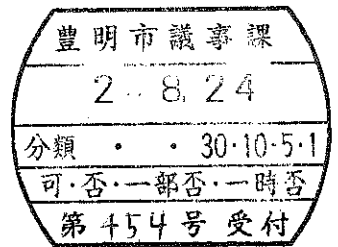 豊明市議事課
2.-8.24
分類 ・ ・ 30・10・5・1
可・否・一部否・一時否
第454号受付